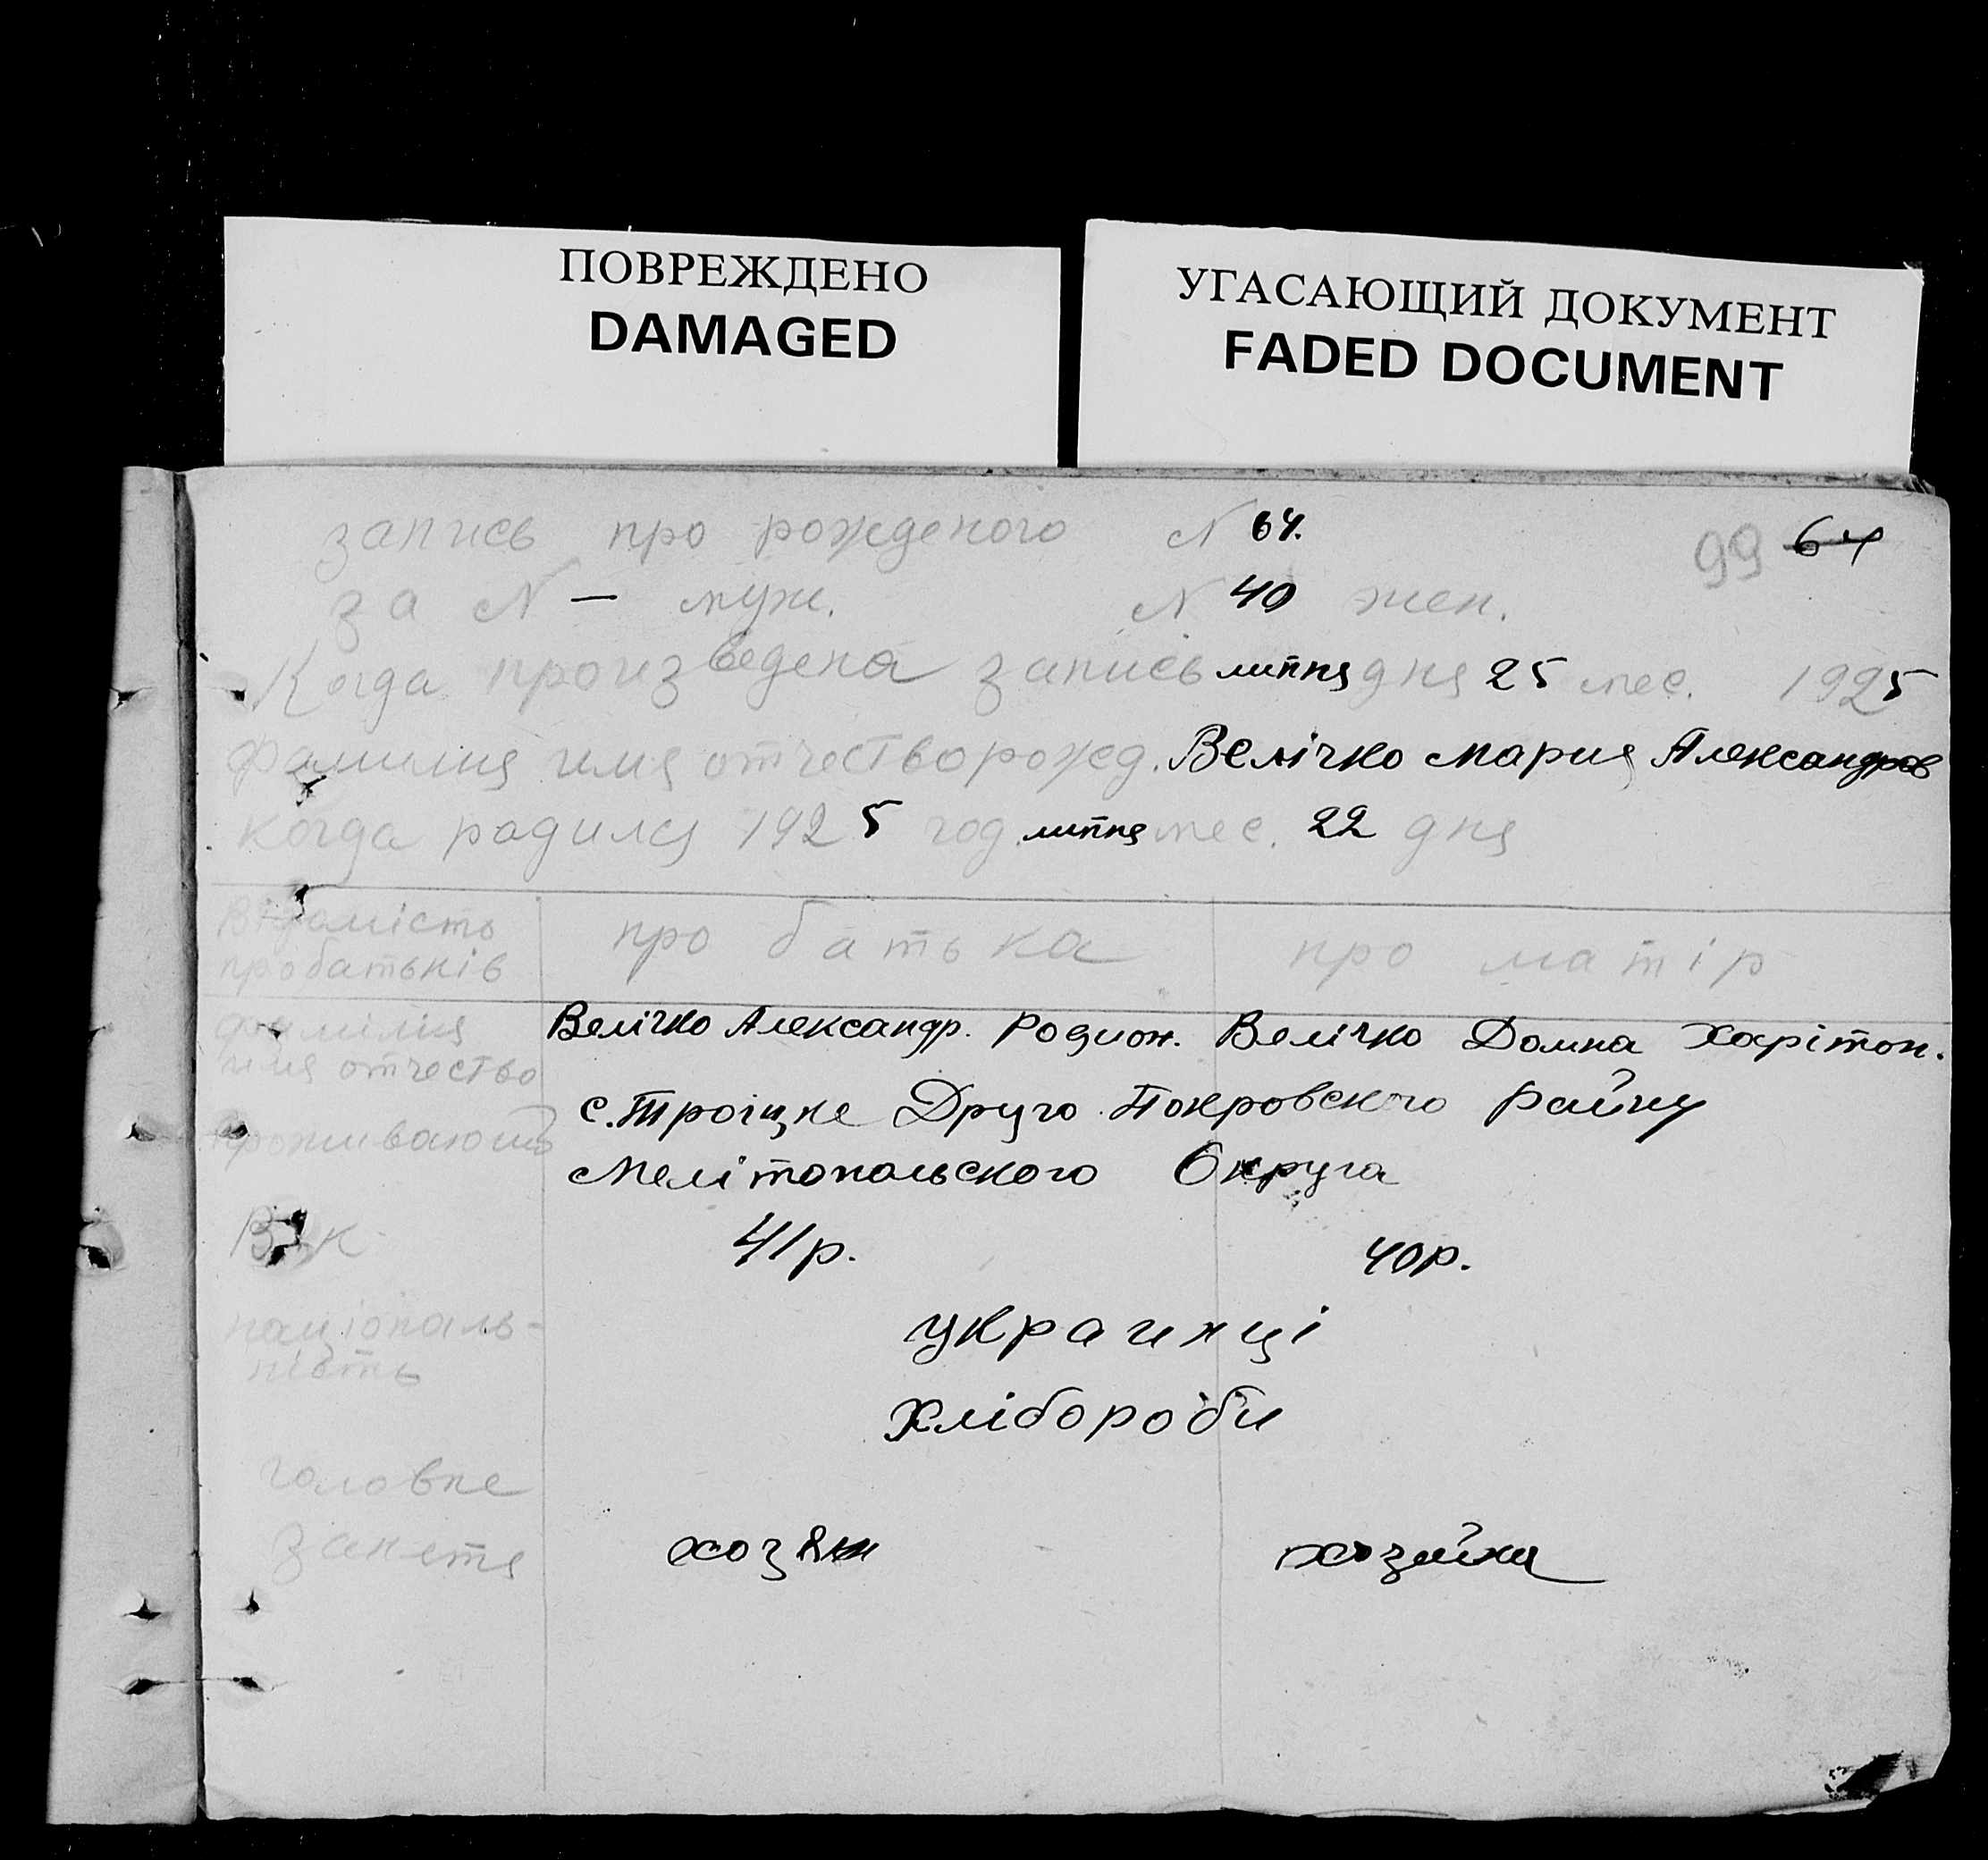 ПОВРЕЖДЕНО
DAMAGED
УГАСАЮЩИЙ ДОКУМЕНТ
FADED DOCUMENT
запись про рожденого N 64.
99 64
за N — муж. N 40 жен.
Когда произведена запись липня дня 25 мес. 1925
фамилия имя отчество рожд. Велічко Мария Александров
когда родился 1925 год. липня мес. 22 дня
Відомість про батьків
про батька
про матір
фамілия имя отчество
Велічко Александр. Родион.
Велічко Домна Харітон.
проживающ
с. Троіцке Друго Покровского Району
Мелітопольского Округа
Вік
41 р.
40 р.
національ-
ність
украинці
Хлібороби
головне
занятя
хозяин
хозяйка